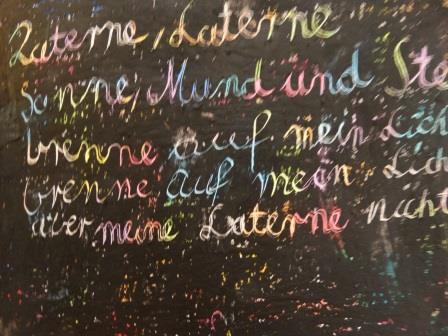 Laterne, Laterne
Sonne, Mund und Ste
brenne auf mein Lich
brenne auf mein Lich
aber meine Laterne nicht